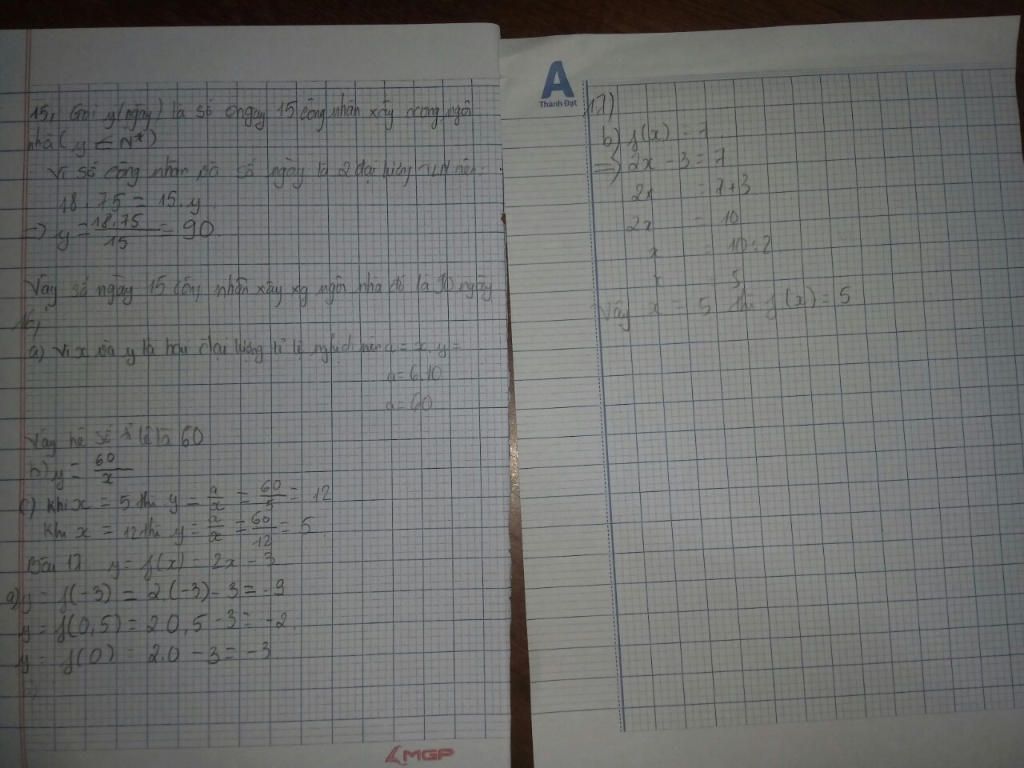 15, Gọi y (ngày) là số ngày 15 công nhân xây xong ngôi
nhà ( y ∈ N*)
Vì số công nhân và số ngày là 2 đại lượng TLN nên:
18.75 = 15.y
=> y = 18.75/15 = 90
Vậy số ngày 15 công nhân xây xg ngôi nhà đó là 90 ngày
16,
a) Vì x và y là hai đại lượng tỉ lệ nghịch nên a = x.y =
a = 6.10
a = 60
Vậy hệ số tỉ lệ là 60
b) y = 60/x
c) Khi x = 5 thì y = a/x = 60/5 = 12
Khi x = 12 thì y = a/x = 60/12 = 5
Bài 17 y = f(x) = 2x - 3
a) y = f(-3) = 2(-3) - 3 = -9
y = f(0,5) = 2 0,5 - 3 = -2
y = f(0) = 2.0 - 3 = -3
MGP
A
Thành Đạt
17)
b) f(x) = 7
=> 2x - 3 = 7
2x = 7+3
2x = 10
x = 10:2
x = 5
Vậy x = 5 thì f(x) = 5